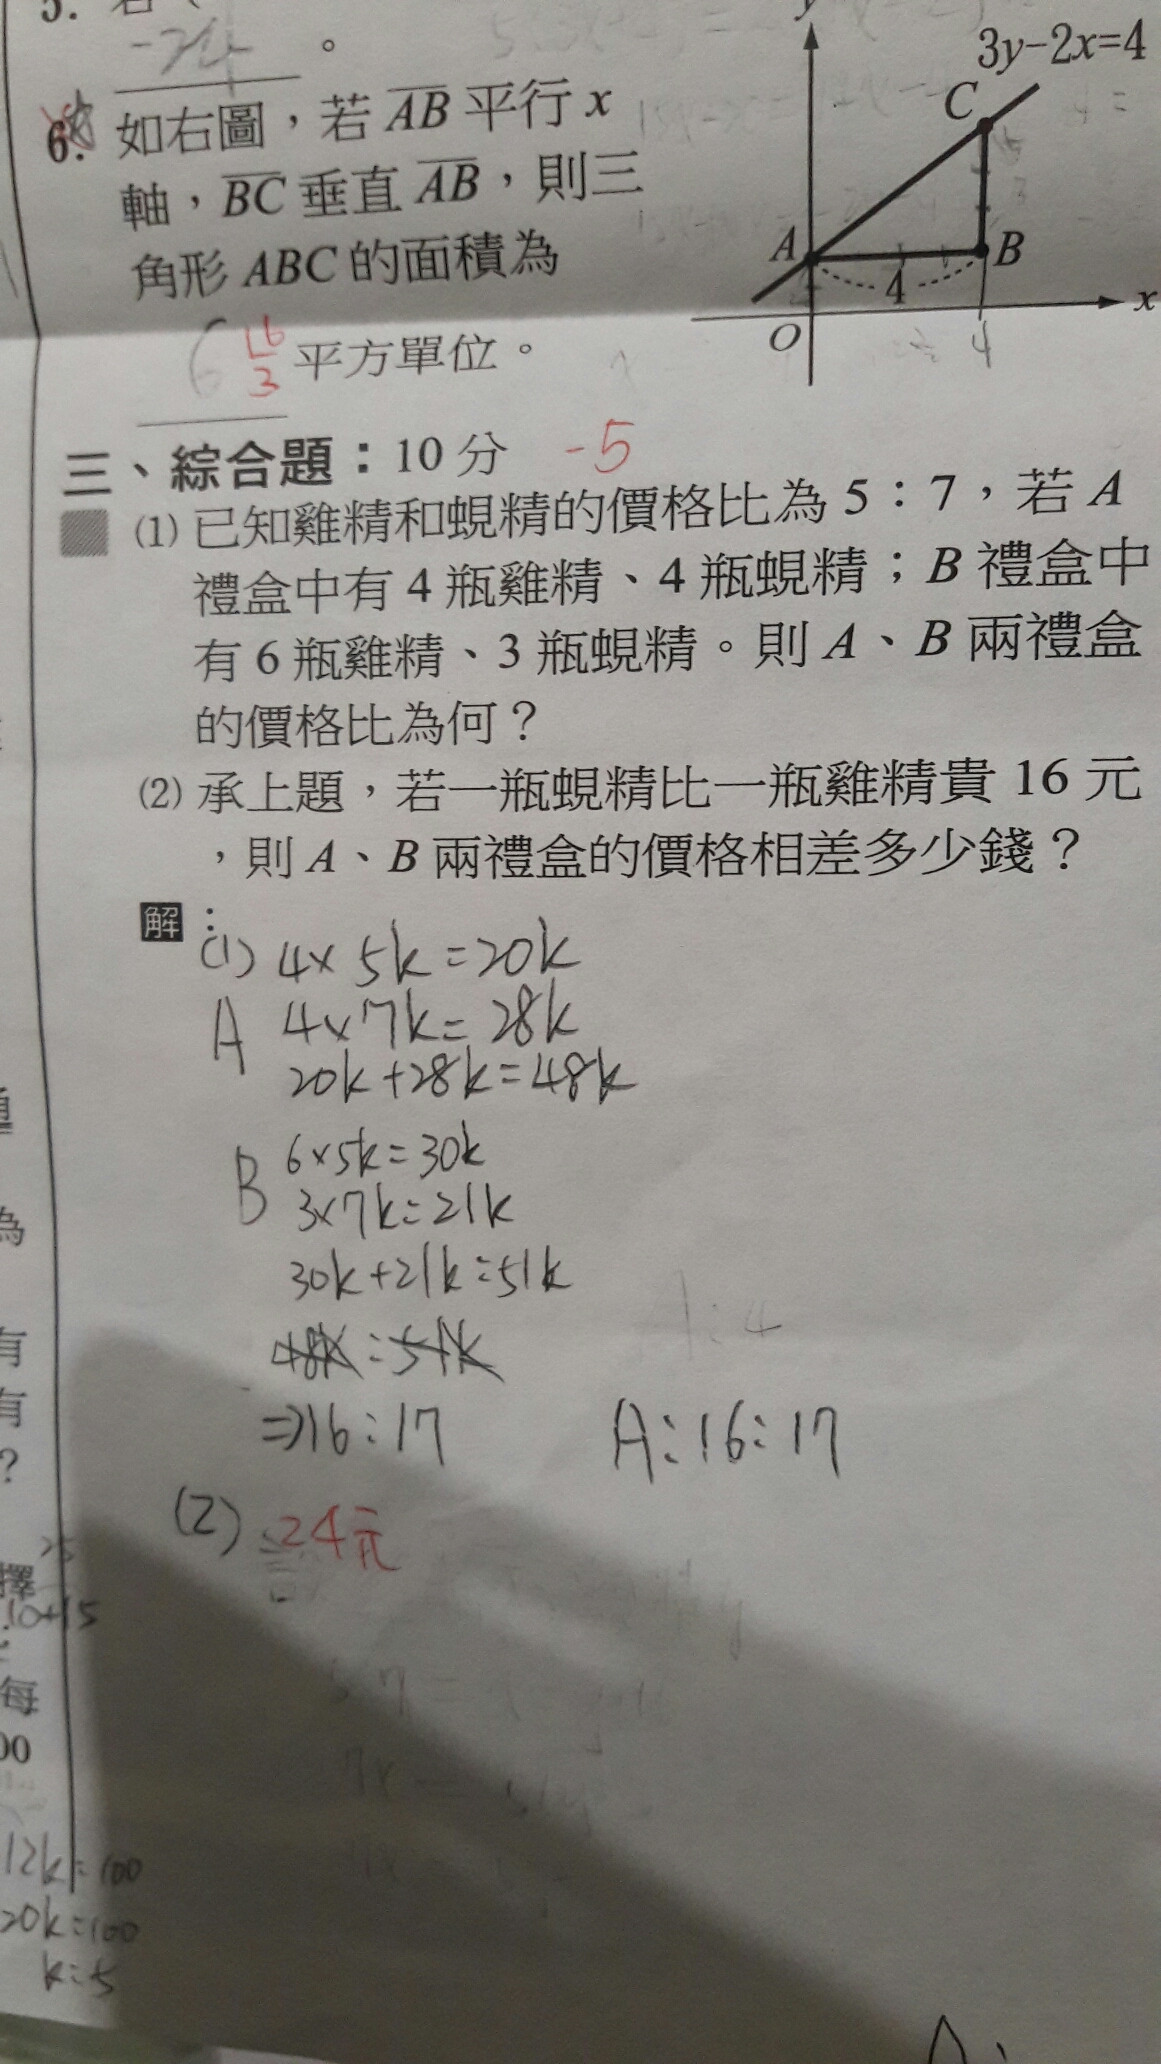 5. 若
-24 。
6. 如右圖，若 AB 平行 x
軸，BC 垂直 AB，則三
角形 ABC 的面積為
6 16/3 平方單位。
y
3y-2x=4
C
A
B
4
O
4
x
三、綜合題：10 分 -5
(1) 已知雞精和蜆精的價格比為 5：7，若 A
禮盒中有 4 瓶雞精、4 瓶蜆精；B 禮盒中
有 6 瓶雞精、3 瓶蜆精。則 A、B 兩禮盒
的價格比為何？
(2) 承上題，若一瓶蜆精比一瓶雞精貴 16 元
，則 A、B 兩禮盒的價格相差多少錢？
解：
(1) 4×5k=20k
A 4×7k=28k
20k+28k=48k
B 6×5k=30k
3×7k=21k
30k+21k=51k
48k:51k
=>16:17
A:16:17
(2) 24元
為
有
有
?
擇
10+15
每
00
12k=100
20k=100
k=5